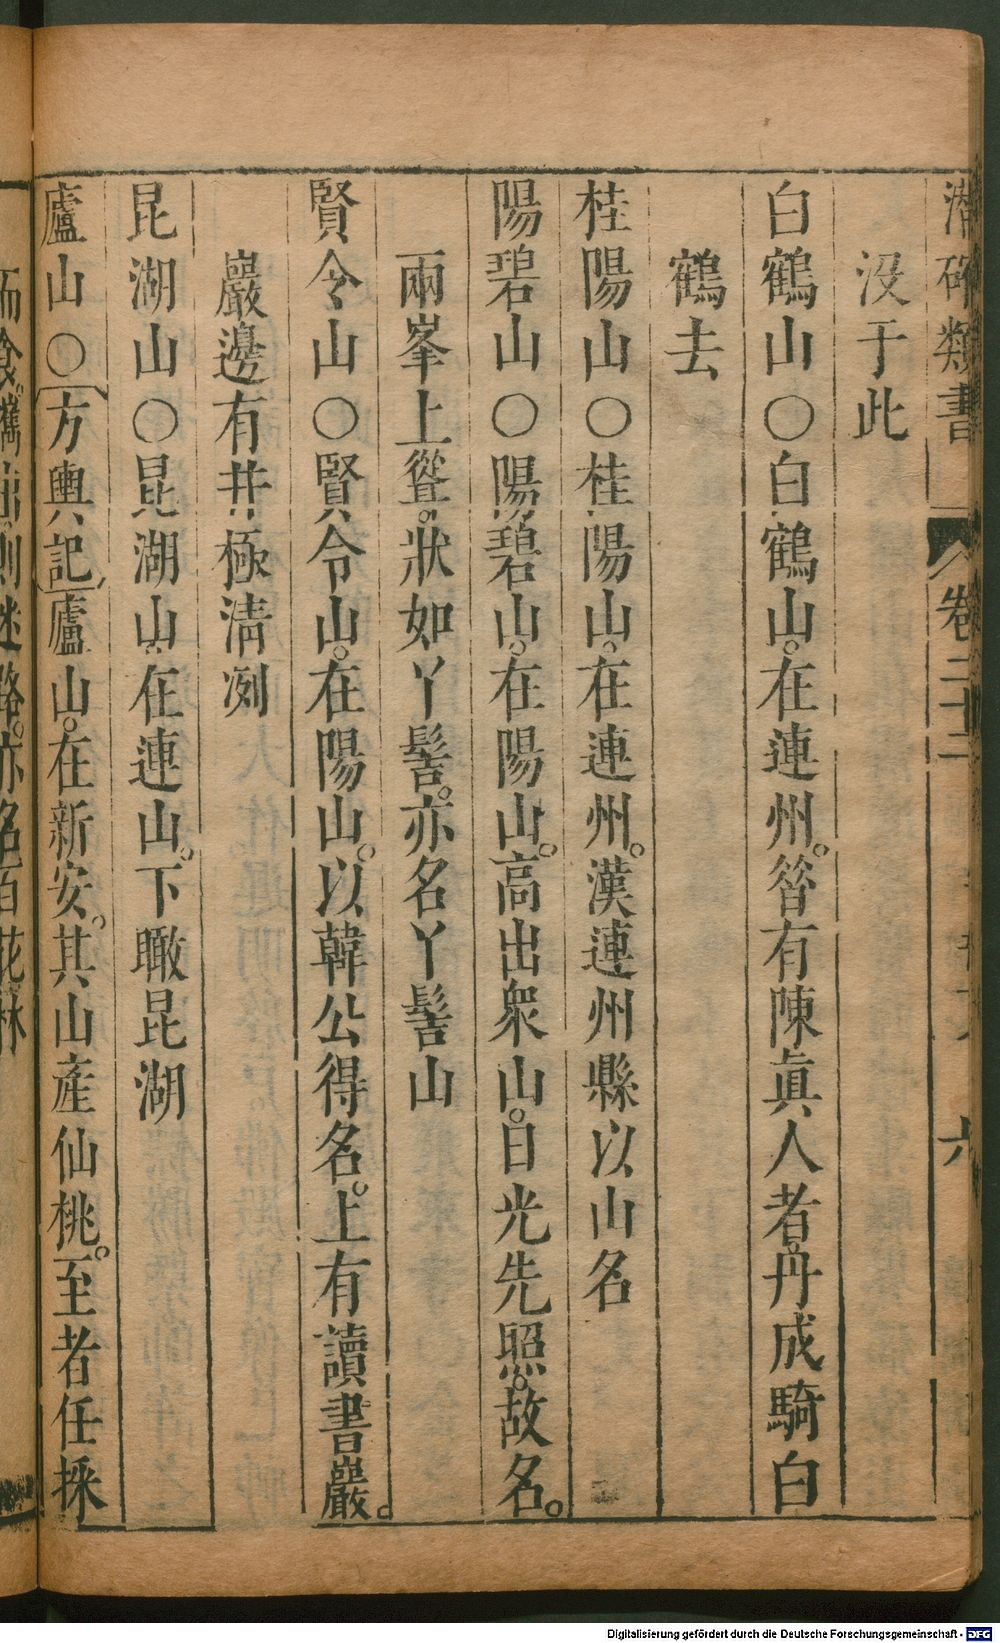 潛確類書 卷二十二 六
没于此
白鶴山○白鶴山。在連州。昝有陳眞人者。丹成騎白
鶴去
桂陽山○桂陽山。在連州。漢連州縣以山名
陽碧山○陽碧山。在陽山。高出衆山。日光先照。故名。
兩峯上聳。狀如丫髻。亦名丫髻山
賢令山○賢令山。在陽山。以韓公得名。上有讀書巖。
巖邊有井極淸冽
昆湖山○昆湖山。在連山。下瞰昆湖
廬山○方輿記廬山。在新安。其山產仙桃。至者任採
而食。攜㱕則迷路。亦名百花林
Digitalisierung gefördert durch die Deutsche Forschungsgemeinschaft - DFG